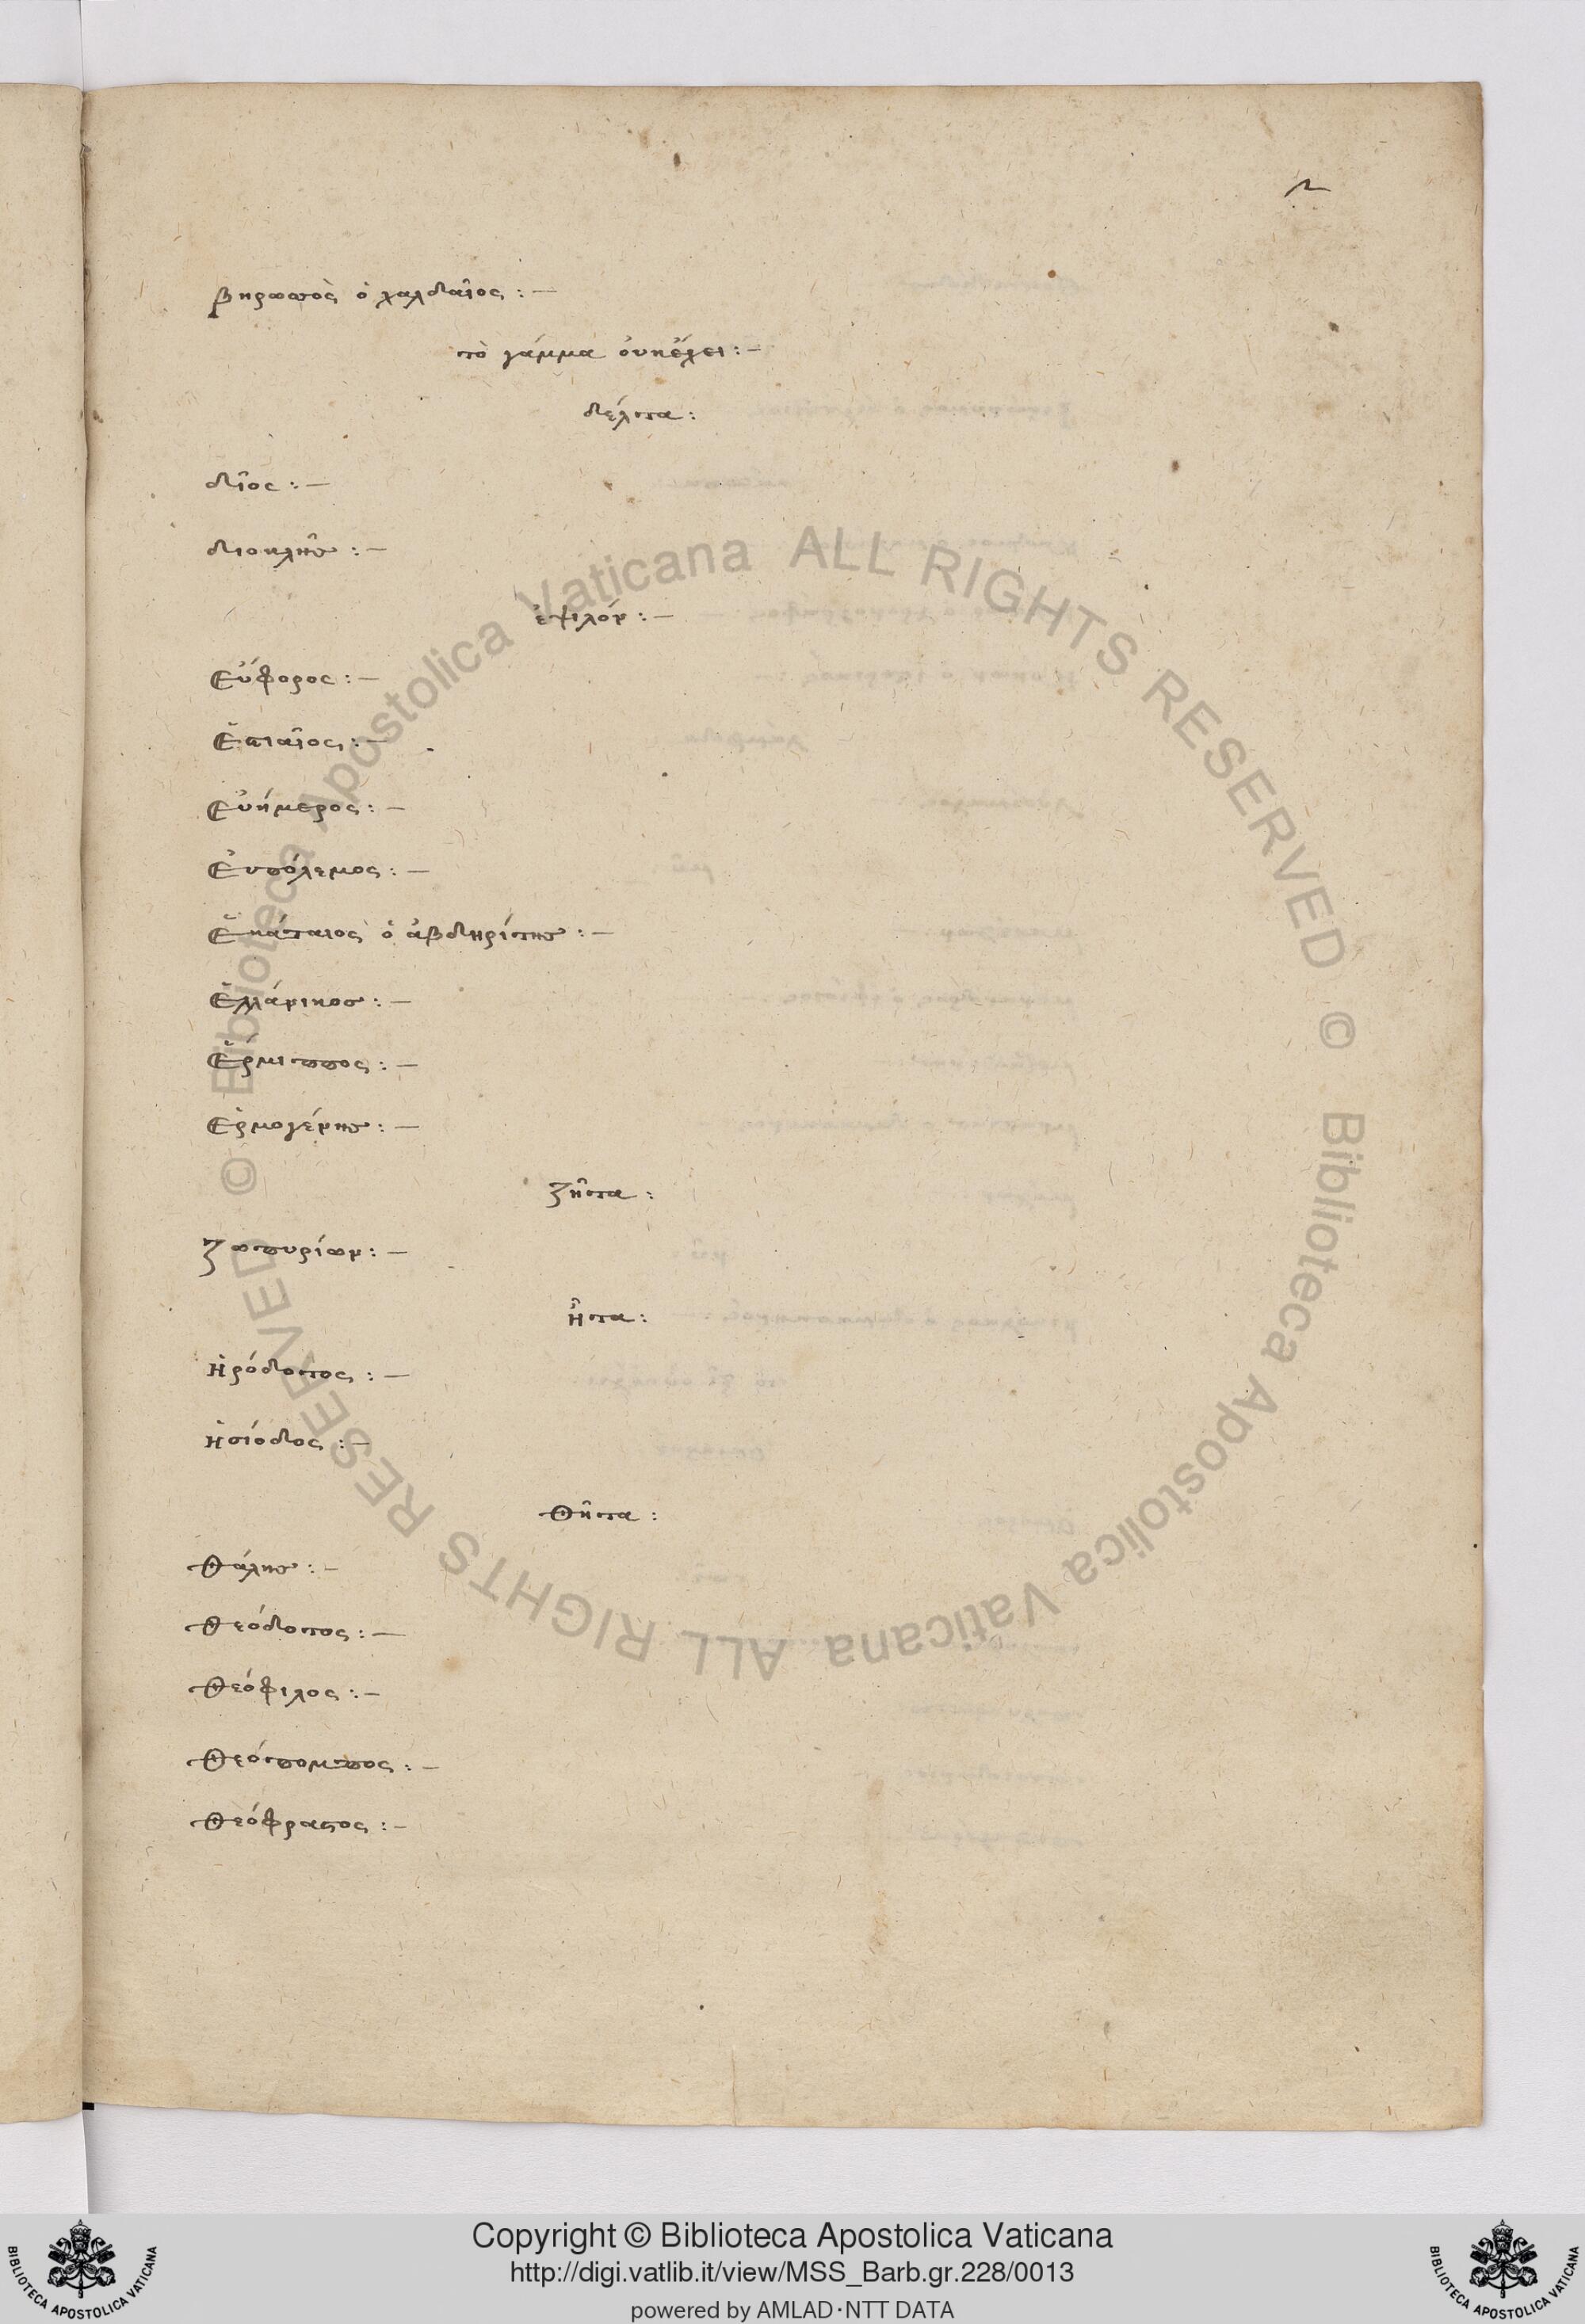 2
βηρωσὸς ὁ χαλδαῖος : —
τὸ γάμμα ὀυκἔχει : —
δέλτα :
δῖος : —
διοκλῆς : —
ἐψιλόν : —
Εὔφορος : —
Ἑστιαῖος : —
Εὐήμερος : —
Εὐπόλεμος : —
Ἑκάταιος ὁ ἀβδηρίτης : —
Ἑλλάνικος : —
Ἕρμιππος : —
Ἑρμογένης : —
ζῆτα :
ζωπυρίων : —
ἦτα :
ἡρόδοτος : —
ἡσίοδος : —
θῆτα :
θάλης : —
θεόδοτος : —
θεόφιλος : —
θεόπομπος : —
θεόφραστος : —
© Biblioteca Apostolica Vaticana ALL RIGHTS RESERVED © Biblioteca Apostolica Vaticana ALL RIGHTS RESERVED
Copyright © Biblioteca Apostolica Vaticana
http://digi.vatlib.it/view/MSS_Barb.gr.228/0013
powered by AMLAD·NTT DATA
BIBLIOTECA APOSTOLICA VATICANA
BIBLIOTECA APOSTOLICA VATICANA